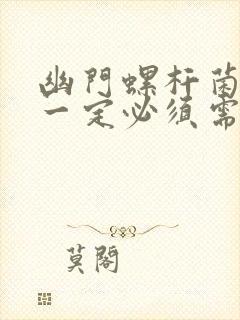 幽門螺杆菌
一定必須需
莫閣